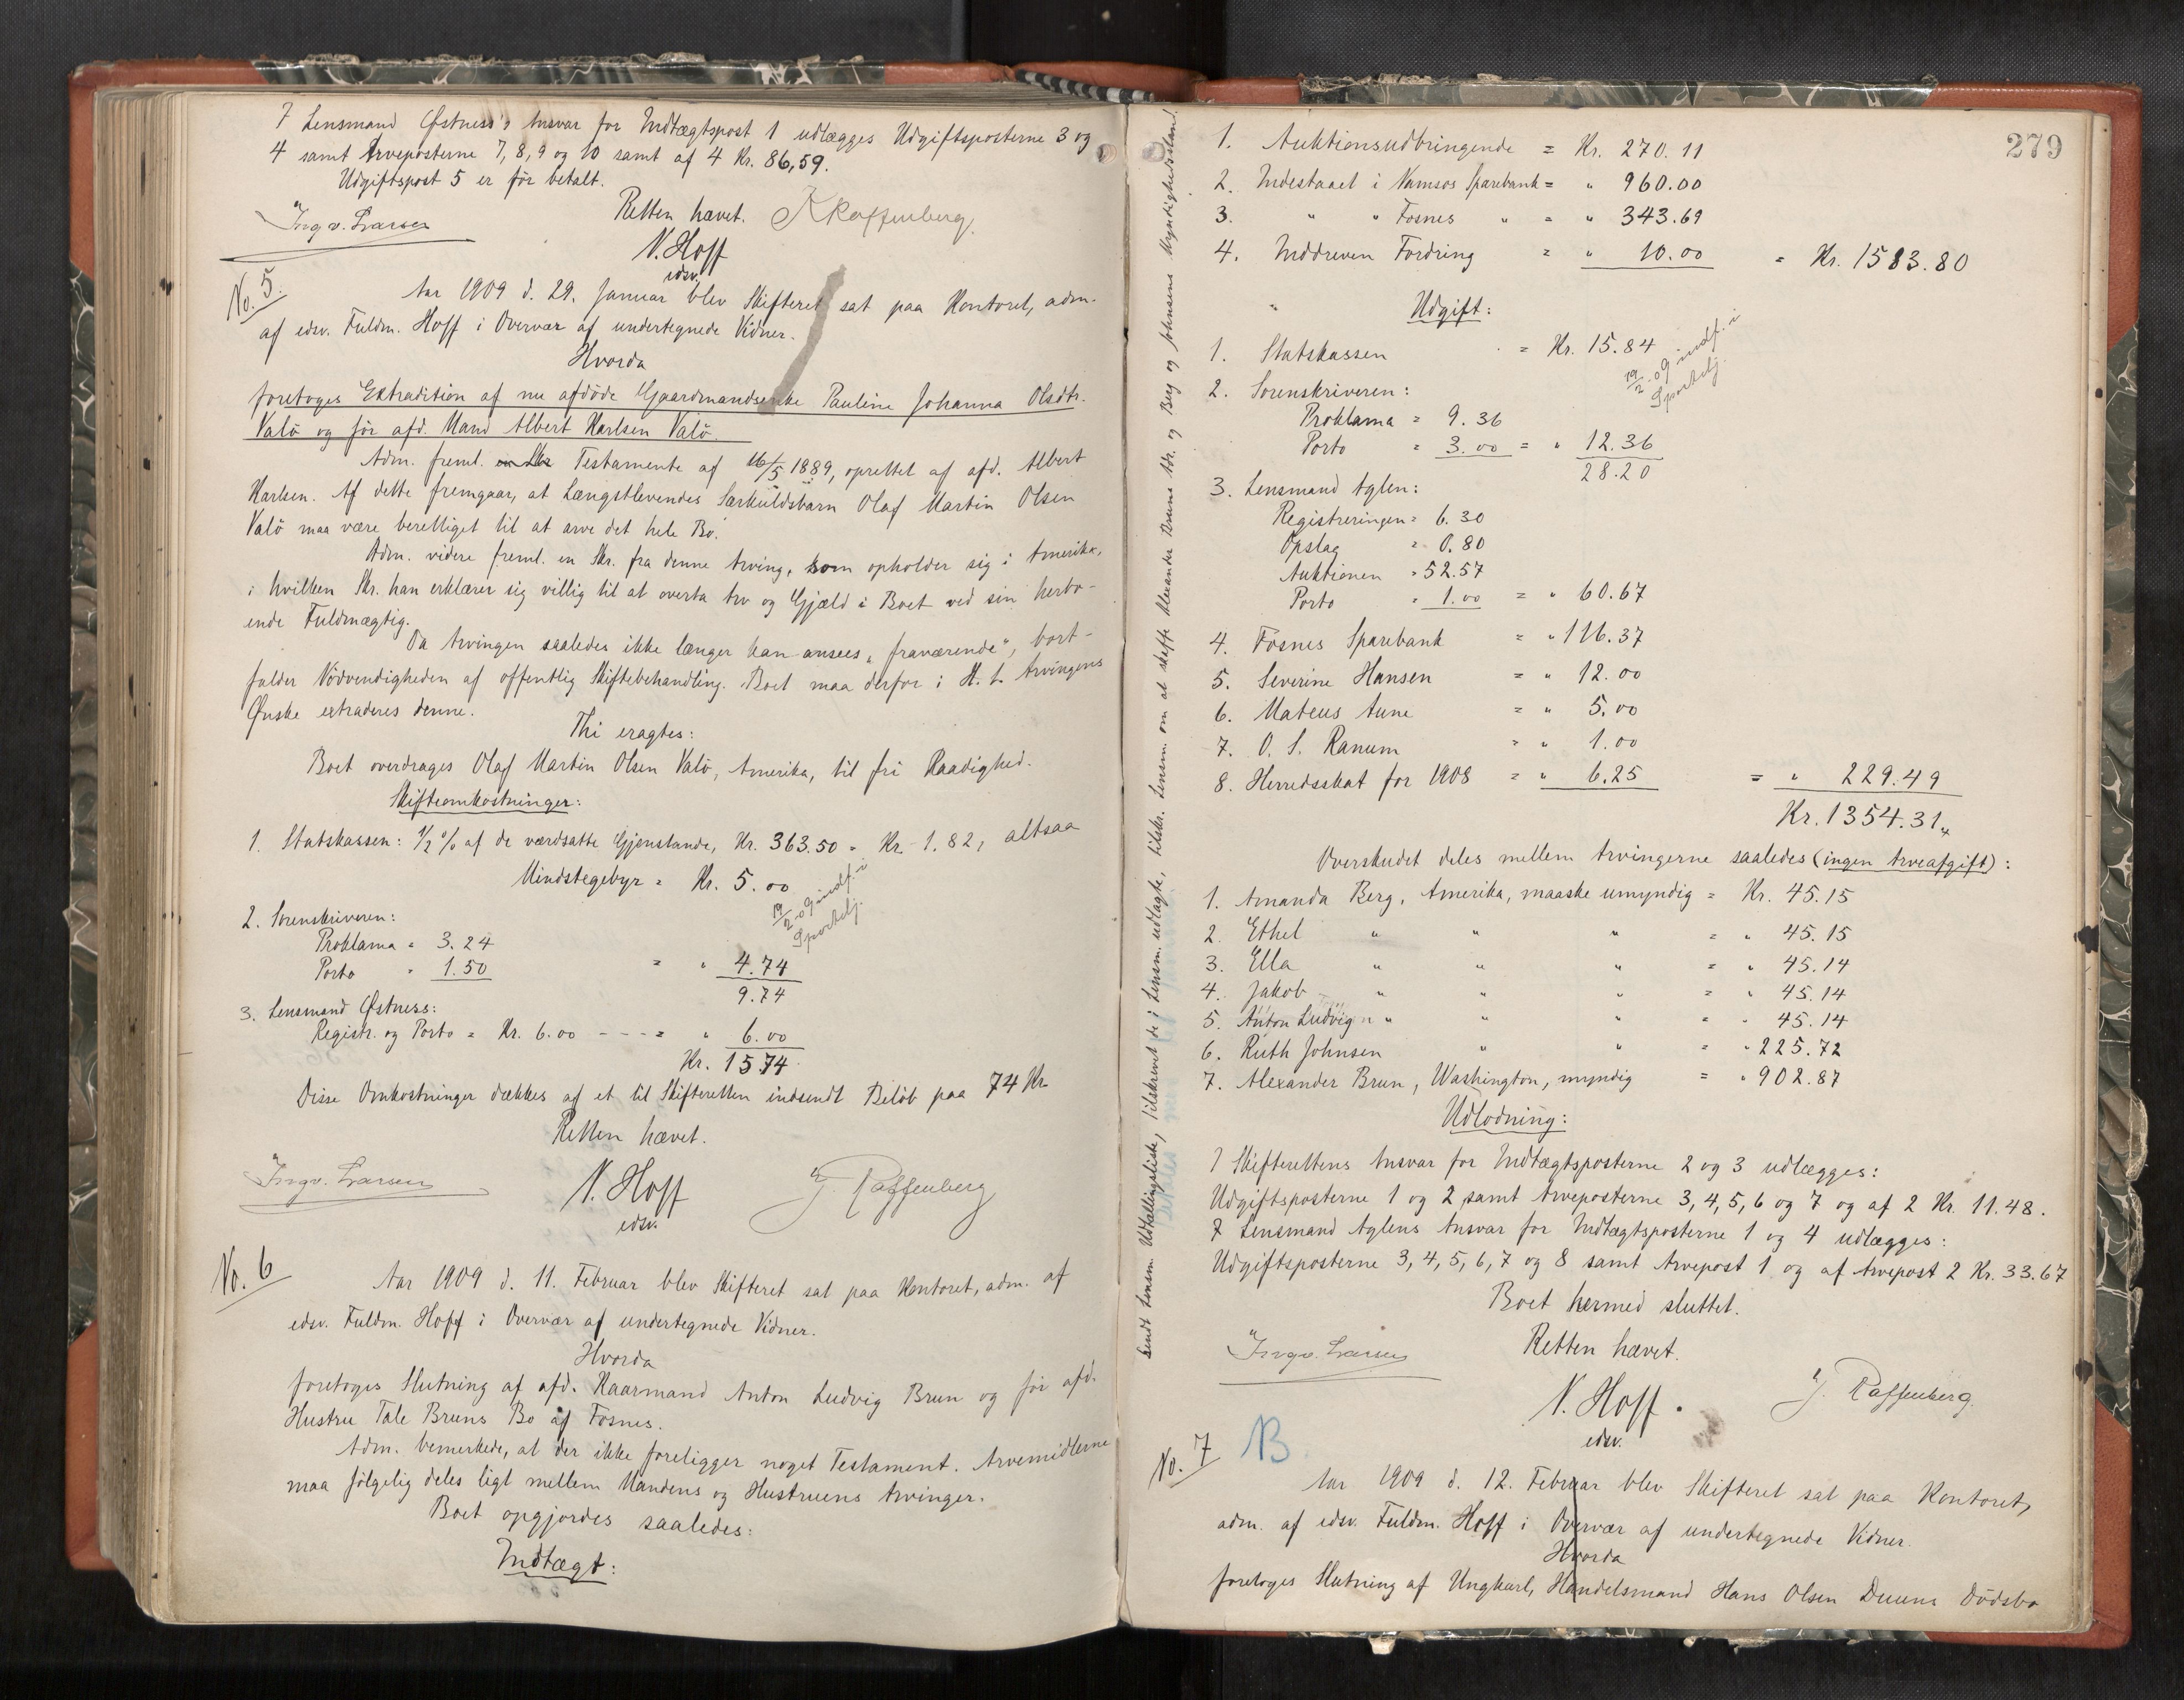 I Lensmand Østness's Ansvar for Indtægtspost 1 udlægges Udgiftsposterne 3 og
4 samt Arveposterne 7, 8, 9 og 10 samt af 4 Kr. 86,59.
Udgiftspost 5 er før betalt.
Retten hævet.
Ingv. Larsen
J Raffenberg
N. Hoff
edsv.
No. 5.
Aar 1909 d. 29. Januar blev Skifteret sat paa Kontoret, adm.
af edsv. Fuldm. Hoff i Overvær af undertegnede Vidner.
Hvorda
foretoges Extradition af nu afdøde Gaardmandsenke Pauline Johanna Olsdtr.
Valø og før afd. Mand Albert Karlsen Valø.
Adm. freml. en Skr Testamente af 16/5 1889, oprettet af afd. Albert
Karlsen. Af dette fremgaar, at Længstlevendes Særkuldsbarn Olaf Martin Olsen
Valø maa være berettiget til at arve det hele Bo.
Adm. videre freml. en Skr. fra denne Arving, som opholder sig i Amerika,
i hvilken Skr. han erklærer sig villig til at overta Arv og Gjæld i Boet ved sin herbo-
ende Fuldmægtig.
Da Arvingen saaledes ikke længer kan ansees „fraværende“, bort-
falder Nødvendigheden af offentlig Skiftebehandling. Boet maa derfor i H. t. Arvingens
Ønske extraderes denne.
Thi eragtes:
Boet overdrages Olaf Martin Olsen Valø, Amerika, til fri Raadighed.
Skifteomkostninger:
1. Statskassen: 1/2 % af de værdsatte Gjenstande, Kr. 363.50 = Kr. 1.82, altsaa
Mindstegebyr = Kr. 5.00
19/2-09 indf. i
Sportelj.
2. Sorenskriveren:
Proklama = 3.24
Porto = 1.50 = " 4.74
9.74
3. Lensmand Østness:
Registr. og Porto = Kr. 6.00 - - - = " 6.00
Kr. 15.74
Disse Omkostninger dækkes af et til Skifteretten indsendt Beløb paa 74 Kr.
Retten hævet.
Ingv. Larsen
N. Hoff
edsv.
J. Raffenberg
No. 6
Aar 1909 d. 11. Februar blev Skifteret sat paa Kontoret, adm. af
edsv. Fuldm. Hoff i Overvær af undertegnede Vidner.
Hvorda
foretoges Slutning af afd. Kaarmand Anton Ludvig Brun og før afd.
Hustru Tale Bruns Bo af Fosnes.
Adm. bemerkede, at der ikke foreligger noget Testament. Arvemidlerne
maa følgelig deles ligt mellem Mandens og Hustruens Arvinger.
Boet opgjordes saaledes:
Indtægt:
279
1. Auktionsudbringende = Kr. 270.11
2. Indestaaet i Namsos Sparebank = " 960.00
3. " " Fosnes " = " 343.69
4. Inddreven Fordring = " 10.00 = Kr. 1583.80
Udgift:
1. Statskassen = Kr. 15.84
19/2-09 indf. i
Sportelj.
2. Sorenskriveren:
Proklama = 9.36
Porto = 3.00 = " 12.36
28.20
3. Lensmand Aglen:
Registreringen = 6.30
Opslag = 0.80
Auktionen = 52.57
Porto = 1.00 = " 60.67
4. Fosnes Sparebank = " 116.37
5. Severine Hansen = " 12.00
6. Mateus Aune = " 5.00
7. O. S. Ranum = " 1.00
8. Herredsskat for 1908 = " 6.25 = " 229.49
Kr. 1354.31
Overskudet deles mellem Arvingerne saaledes (ingen Arveafgift):
1. Amanda Berg, Amerika, maaske umyndig = Kr. 45.15
2. Ethel " " " = " 45.15
3. Ella " " " = " 45.14
4. Jakob " " " = " 45.14
5. Anton Ludvig " " " = " 45.14
6. Ruth Johnsen " " = " 225.72
7. Alexander Brun, Washington, myndig = " 902.87
Udlodning:
I Skifterettens Ansvar for Indtægtsposterne 2 og 3 udlægges:
Udgiftsposterne 1 og 2 samt Arveposterne 3, 4, 5, 6 og 7 og af 2 Kr. 11.48.
I Lensmand Aglens Ansvar for Indtægtsposterne 1 og 4 udlægges:
Udgiftsposterne 3, 4, 5, 6, 7 og 8 samt Arvepost 1 og af Arvepost 2 Kr. 33.67
Boet hermed sluttet.
Retten hævet.
Ingv. Larsen
N. Hoff.
edsv.
J. Raffenberg.
sendt Lensm Udtallingsliste, tilskrevet de i Lensm. udlagte, tilskr. Lensm. om at skaffe Alexander Bruns Adr. og Berg og Johnsens Myndighedsstand.
No. 7
B
Aar 1909 d. 12. Februar blev Skifteret sat paa Kontoret,
adm. af edsv. Fuldm. Hoff i Overvær af undertegnede Vidner.
Hvorda
foretoges Slutning af Ungkarl, Handelsmand Hans Olsen Duuns Dødsbo